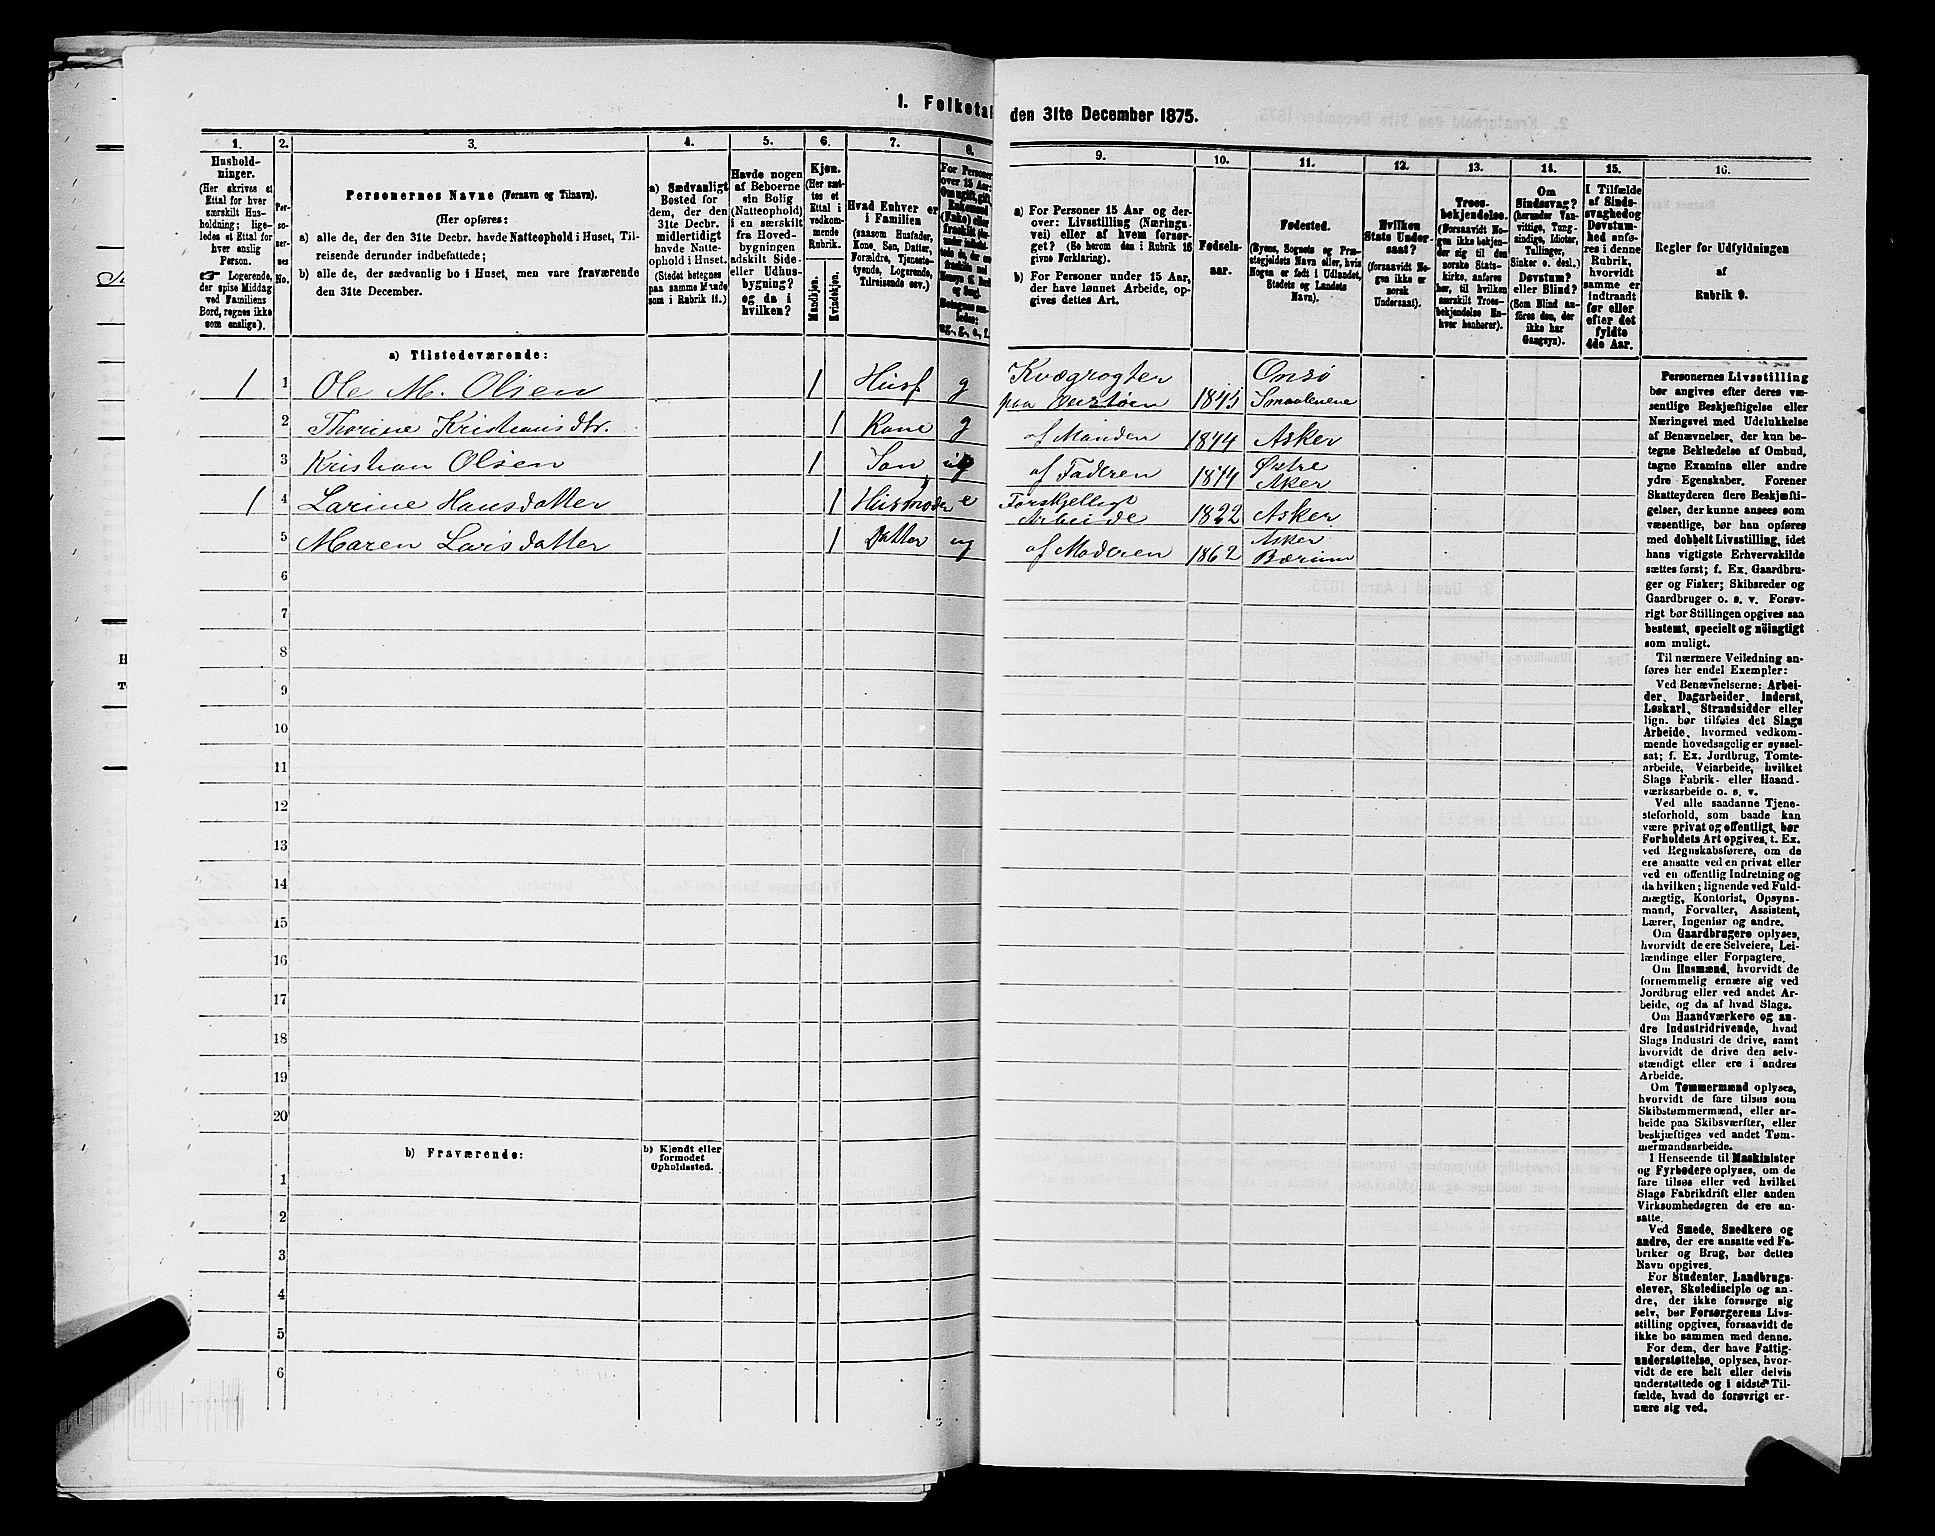 1. Folketal
den 31te December 1875.
1.
Hushold-
ninger.
(Her skrives et
Ettal for hver
særskilt Hus-
holdning; lige-
ledes et Ettal for
hver enslig
Person.
☞ Logerende,
der spise Middag
ved Familiens
Bord, regnes ikke
som enslige).
2.
Per-
so-
ner-
nes
No.
3.
Personernes Navne (Fornavn og Tilnavn).
(Her opføres:
a) alle de, der den 31te Decbr. havde Natteophold i Huset, Til-
reisende derunder indbefattede;
b) alle de, der sædvanlig bo i Huset, men vare fraværende
den 31te December.
4.
a) Sædvanligt
Bosted for
dem, der den
31te Decbr.
midlertidigt
havde Natte-
ophold i Huset.
(Stedet betegnes
paa samme Maade
som i Rubrik 11.)
5.
Havde nogen
af Beboerne
sin Bolig
(Natteophold)
i en særskilt
fra Hoved-
bygningen
adskilt Side-
eller Udhus-
bygning?
og da i
hvilken?
6.
Kjøn.
(Her sæt-
tes et
Ettal i
vedkom-
mende
Rubrik.
Mandkjøn.
Kvindekjøn.
7.
Hvad Enhver er
i Familien
(saasom Husfader,
Kone, Søn, Datter,
Forældre, Tjeneste-
tyende, Logerende,
Tilreisende osv.)
8.
For Personer
over 15 Aar:
Om ugift, gift,
Enkemand
(Enke) eller
fraskilt
ug., g., e., f.
9.
a) For Personer 15 Aar og der-
over: Livsstilling (Nærings-
vei) eller af hvem forsør-
get? (Se herom den i Rubrik 16
givne Forklaring).
b) For Personer under 15 Aar,
der have lønnet Arbeide, op-
gives dettes Art.
10.
Fødsels-
aar.
11.
Fødested.
(Byens, Sognets og Præ-
stegjeldets Navn eller, hvis
Nogen er født i Udlandet,
Stedets og Landets
Navn).
12.
Hvilken
Stats Under-
saat?
(forsaavidt No-
gen ikke er
norsk
Undersaat).
13.
Troes-
bekjendelse.
(Forsaavidt No-
gen ikke bekjen-
der sig til den
norske Stats-
kirke, anføres
her, til hvilken
særskilt Troes-
bekjendelse En-
hver henhører).
14.
Om
Sindssvag?
(herunder Van-
vittige, Tung-
sindige, Idioter,
Tullinger,
Sinker o. desl.)
Døvstum?
eller Blind?
(Som Blind an-
føres den, der
ikke har
Gangsyn).
15.
I Tilfælde
af Sinds-
svaghed og
Døvstum-
hed anfø-
res i denne
Rubrik,
hvorvidt
samme er
indtraadt
før eller
efter det
fyldte
4de Aar.
16.
Regler for Udfyldningen
af
Rubrik 9.
a) Tilstedeværende:
1 1 Ole M. Olsen 1 Husf g Kvægrøgter paa 1845 Onsø Smaalenene
2 Thorine Kristiansdtr. 1 Kone g af Manden 1844 Asker
3 Kristian Olsen 1 Søn ug af Faderen 1874 Østre Aker
1 4 Larine Hansdatter 1 Husmoder e Forskjelligt Arbeide 1822 Asker
5 Maren Larsdatter 1 Datter ug af Moderen 1862 Asker Bærum
6
7
8
9
10
11
12
13
14
15
16
17
18
19
20
b) Fraværende:
b) Kjendt eller
formodet
Opholdssted.
1
2
3
4
5
6
Personernes Livsstilling
bør angives efter deres væ-
sentlige Beskjæftigelse eller
Næringsvei med Udelukkelse
af Benævnelser, der kun be-
tegne Beklædelse af Ombud,
tagne Examina eller andre
ydre Egenskaber. Forener
Skatteyderen flere Beskjæfti-
gelser, der kunne ansees som
væsentlige, bør han opføres
med dobbelt Livsstilling, idet
hans vigtigste Erhvervskilde
sættes først; f. Ex. Gaardbru-
ger og Fisker; Skibsreder og
Gaardbruger o. s. v. Forøv-
rigt bør Stillingen opgives saa
bestemt, specielt og nöiagtigt
som muligt.
Til nærmere Veiledning an-
føres her endel Exempler:
Ved Benævnelserne: Arbei-
der, Dagarbeider, Inderst,
Løskarl, Strandsidder eller
lign. bør tilføies det Slags
Arbeide, hvormed vedkom-
mende hovedsagelig er syssel-
sat; f. Ex. Jordbrug, Tomte-
arbeide, Veiarbeide, hvilket
Slags Fabrik- eller Haand-
værksarbeide o. s. v.
Ved alle saadanne Tjene-
steforhold, som baade kan
være privat og offentligt, bør
Forholdets Art opgives, t. Ex.
ved Regnskabsførere, om de
ere ansatte ved en privat eller
ved en offentlig Indretning og
da hvilken; lignende ved Fuld-
mægtig, Kontorist, Opsyns-
mand, Forvalter, Assistent,
Lærer, Ingeniør og andre.
Om Gaardbrugere oplyses,
hvorvidt de ere Selveiere, Lei-
lændinge eller Forpagtere.
Om Husmænd, hvorvidt de
fornemmelig ernære sig ved
Jordbrug eller ved andet Ar-
beide, og da af hvad Slags.
Om Haandværkere og an-
dre Industridrivende, hvad
Slags Industri de drive, samt
hvorvidt de drive den selv-
stændigt eller ere i andres
Arbeide.
Om Tømmermænd oplyses,
hvorvidt de fare tilsøs som
Skibstømmermænd, eller ar-
beide paa Skibsværfter, eller
beskjæftiges ved andet Tøm-
mermandsarbeide.
I Henseende til Maskinister
og Fyrbødere oplyses, om de
fare tilsøs eller ved hvilket
Slags Fabrikdrift eller anden
Virksomhedsgren de ere an-
satte.
Ved Smede, Snedkere og
andre, der ere ansatte ved Fa-
briker og Brug, bør dettes
Navn opgives.
For Studenter, Landbrugs-
elever, Skoledisciple og an-
dre, der ikke forsørge sig
selv, bør Forsørgerens Livs-
stilling opgives, forsaavidt de
ikke bo sammen med denne.
For dem, der have Fattig-
understøttelse, oplyses, hvor-
vidt de ere helt eller delvis
understøttede og i sidste Til-
fælde, hvad de forøvrigt er-
nære sig ved.